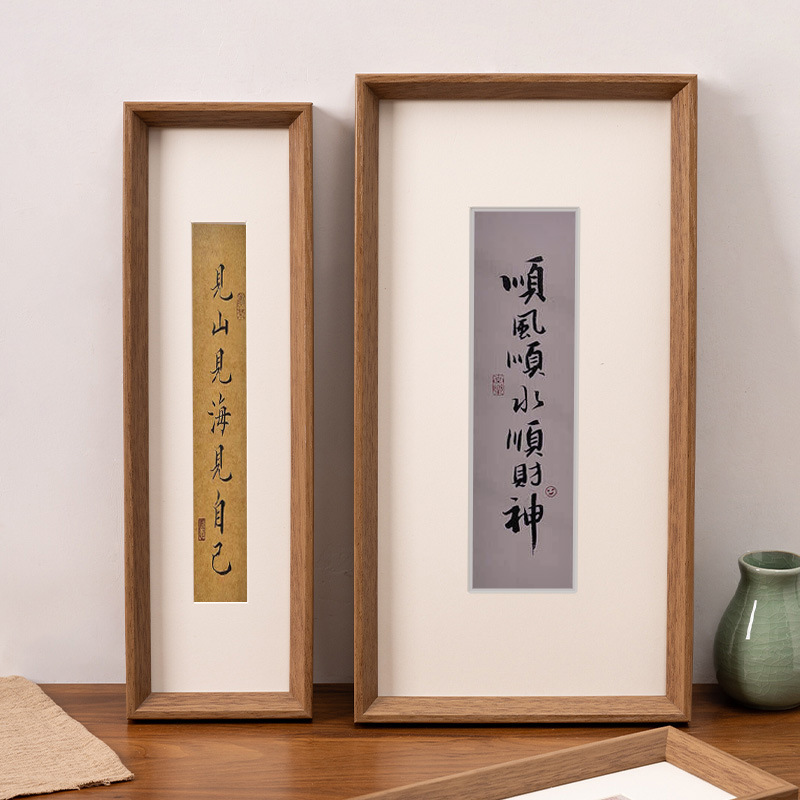 見山見海見自己
順風順水順財神